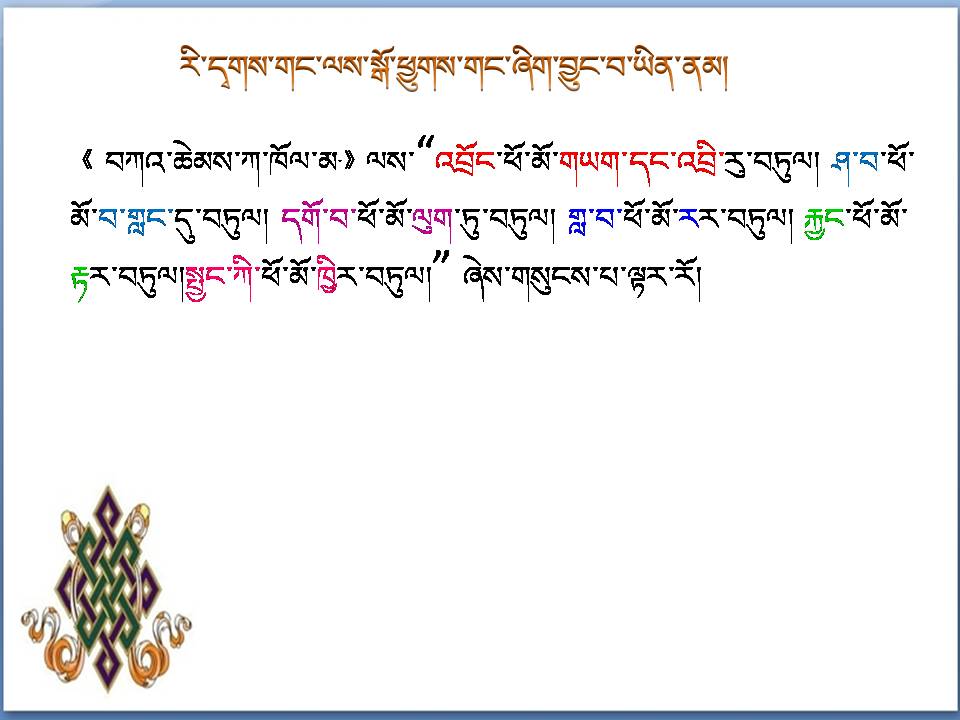 རི་དྭགས་གང་ལས་སྒོ་ཕྱུགས་གང་ཞིག་བྱུང་བ་ཡིན་ནམ།
《 བཀའ་ཆེམས་ཀ་ཁོལ་མ་》ལས་“འབྲོང་ཕོ་མོ་གཡག་དང་འབྲི་རུ་བཏུལ། ཤ་བ་ཕོ་
མོ་བ་གླང་དུ་བཏུལ། དགོ་བ་ཕོ་མོ་ལུག་ཏུ་བཏུལ། གླ་བ་ཕོ་མོ་རར་བཏུལ། རྐྱང་ཕོ་མོ་
རྟར་བཏུལ།སྤྱང་ཀི་ཕོ་མོ་ཁྱིར་བཏུལ།” ཞེས་གསུངས་པ་ལྟར་རོ།